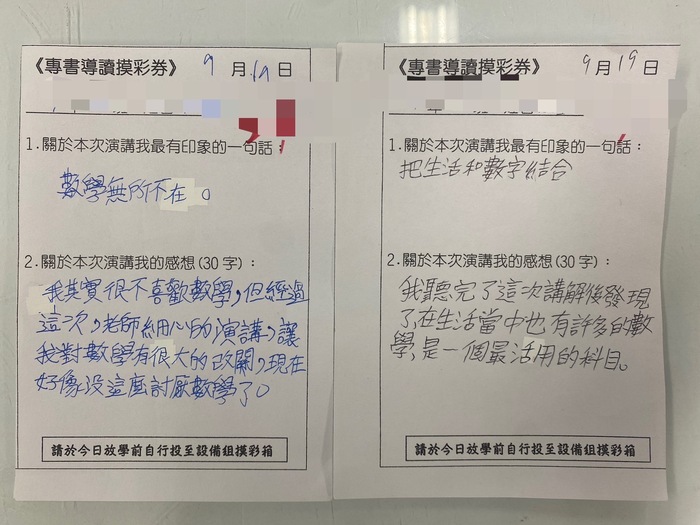 《專書導讀摸彩券》 9月19日
1.關於本次演講我最有印象的一句話：
數學無所不在。
2.關於本次演講我的感想(30字)：
我其實很不喜歡數學，但經過
這次，老師細心的演講，讓
我對數學有很大的改關，現在
好像沒這麼討厭數學了。
請於今日放學前自行投至設備組摸彩箱
《專書導讀摸彩券》 9月19日
1.關於本次演講我最有印象的一句話：
把生活和數字結合
2.關於本次演講我的感想(30字)：
我聽完了這次講解後發現
了，在生活當中也有許多的數
學，是一個最活用的科目。
請於今日放學前自行投至設備組摸彩箱